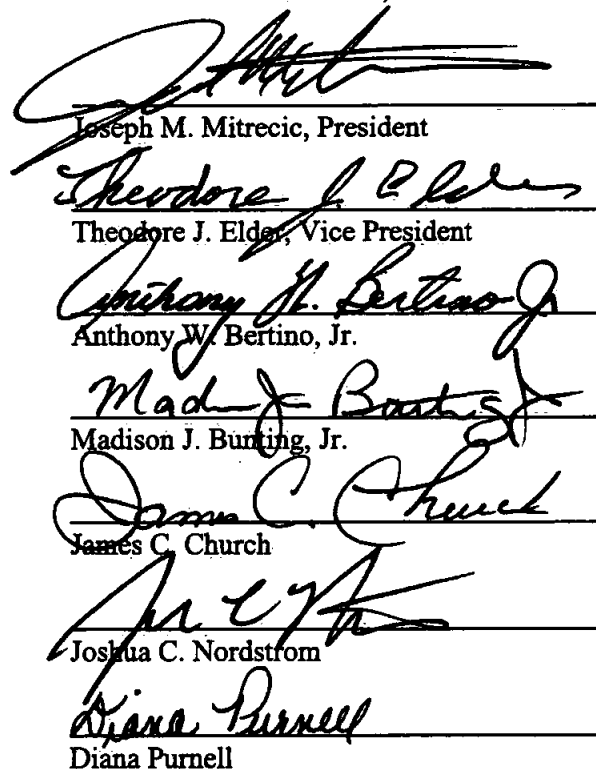 Joseph M. Mitrecic, President
Theodore J. Elder
Theodore J. Elder, Vice President
Anthony W. Bertino Jr
Anthony W. Bertino, Jr.
Madison J. Bunting, Jr.
James C. Church
James C. Church
Joshua C. Nordstrom
Diana Purnell
Diana Purnell